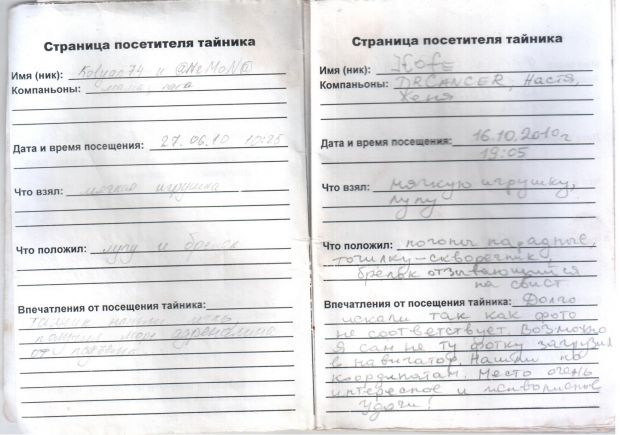 Страница посетителя тайника
Имя (ник): Kolyan74 и @NeMoN@
Компаньоны: мама, папа
Дата и время посещения: 27.06.10 10:25
Что взял: мягкая игрушка
Что положил: лупу и брелок
Впечатления от посещения тайника:
тайник нашли
получили море адреналина
от
Страница посетителя тайника
Имя (ник): Kofe
Компаньоны: DRCANCER, Настя,
Женя
Дата и время посещения: 16.10.2010г
19:05
Что взял: мягкую игрушку,
лупу
Что положил: погоны парадные,
точилку-скворечник,
брелок отзывающийся
на свист
Впечатления от посещения тайника: Долго
искали так как фото
не соответствует. Возможно
я сам не ту фотку загрузил
в навигатор. Нашли по
координатам. Место очень
интересное и живописное
Удачи!